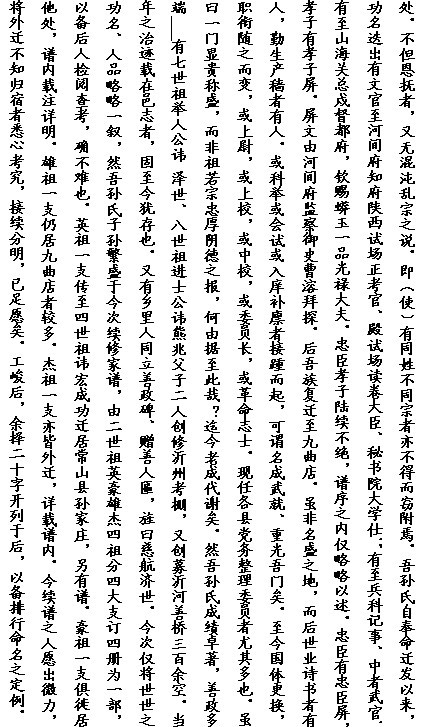 处。不但恩抚者，又无混沌乱宗之说。即（使）有同姓不同宗者亦不得而蒭附焉。吾孙氏自奉命迁发以来，
功名迭出有文官至河间府知府陕西试场正考官、殿试场读卷大臣、秘书院大学仕；有至兵科记事、中者武官，
有至山海关总戍督都府，钦赐蟒玉一品光禄大夫。忠臣孝子陆续不绝，谱序之内仅略略以述。忠臣有忠臣屏，
孝子有孝子屏。屏文由河间府监察御史曹溶拜撰。后吾族复迁至九曲店。虽非名盛之地，而后世业诗书者有
人，勤生产穑者有人。或科举或会试或入庠补廪者接踵而起，可谓名成武就、重光吾门矣。至今国体更换，
职衔随之而变，或上尉，或上校，或中校，或委员长，或革命志士。现任各县党务整理委员者尤其多也。虽
曰一门显贵称盛，而非祖若宗忠厚阴德之报，何由据至此哉？迄今老成代谢矣。然吾孙氏成绩卓著，善政多
端——有七世祖举人公讳 泽世、八世祖进士公讳熊兆父子二人创修沂州考棚，又创募沂河善桥三百余空。当
年之治迹载在邑志者，因至今犹存也。又有乡里人同立善政碑、赠善人匾，旌曰慈航济世。今次仅将世世之
功名、人品略略一叙，然吾孙氏子孙繁盛于今次续修家谱，由二世祖英豪雄杰四祖分四大支订四册为一部，
以备后人检阅查考，确不难也。英祖一支传至四世祖讳宏成功迁居常山县孙家庄，另有谱。豪祖一支俱徙居
他处，谱内载注详明。雄祖一支仍居九曲店者较多。杰祖一支亦皆外迁，详载谱内。今续谱之人愿出微力，
将外迁不知归宿者悉心考究，接续分明，已足愿矣。工峻后，余择二十字开列于后，以备排行命名之定例。